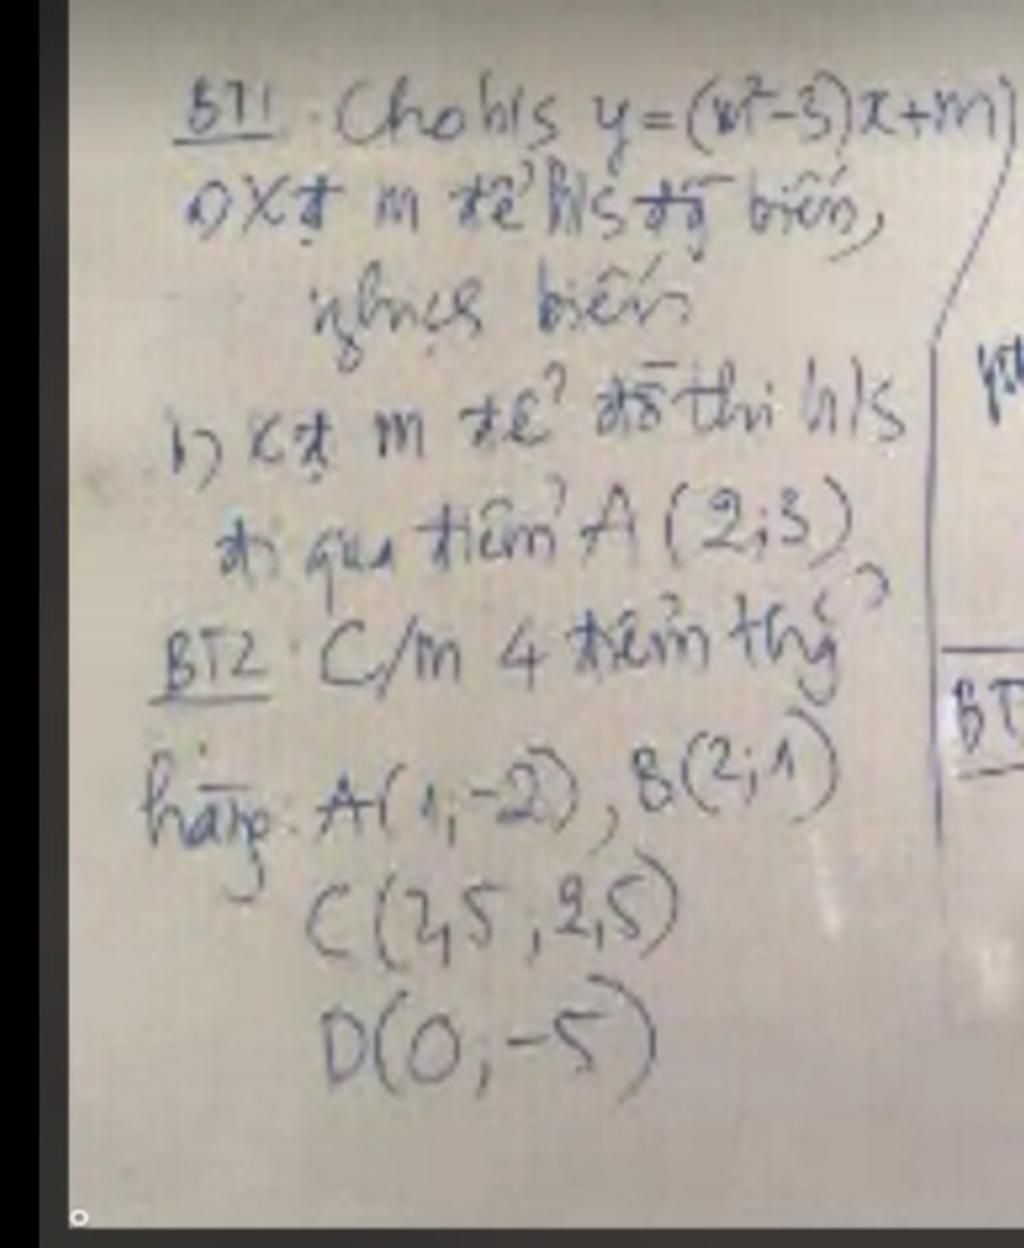 BT1: Cho h/s y=(m²-3)x+m
a) Xđ m để h/s đg biến,
nghịch biến
b) Xđ m để đồ thị h/s
đi qua điểm A(2;3)
BT2: C/m 4 điểm thg
hàng: A(1;-2), B(2;1)
C(2,5;2,5)
D(0;-5)
BT